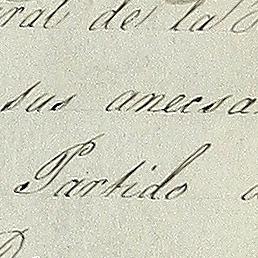 ral de la
sus anecsa
Partido